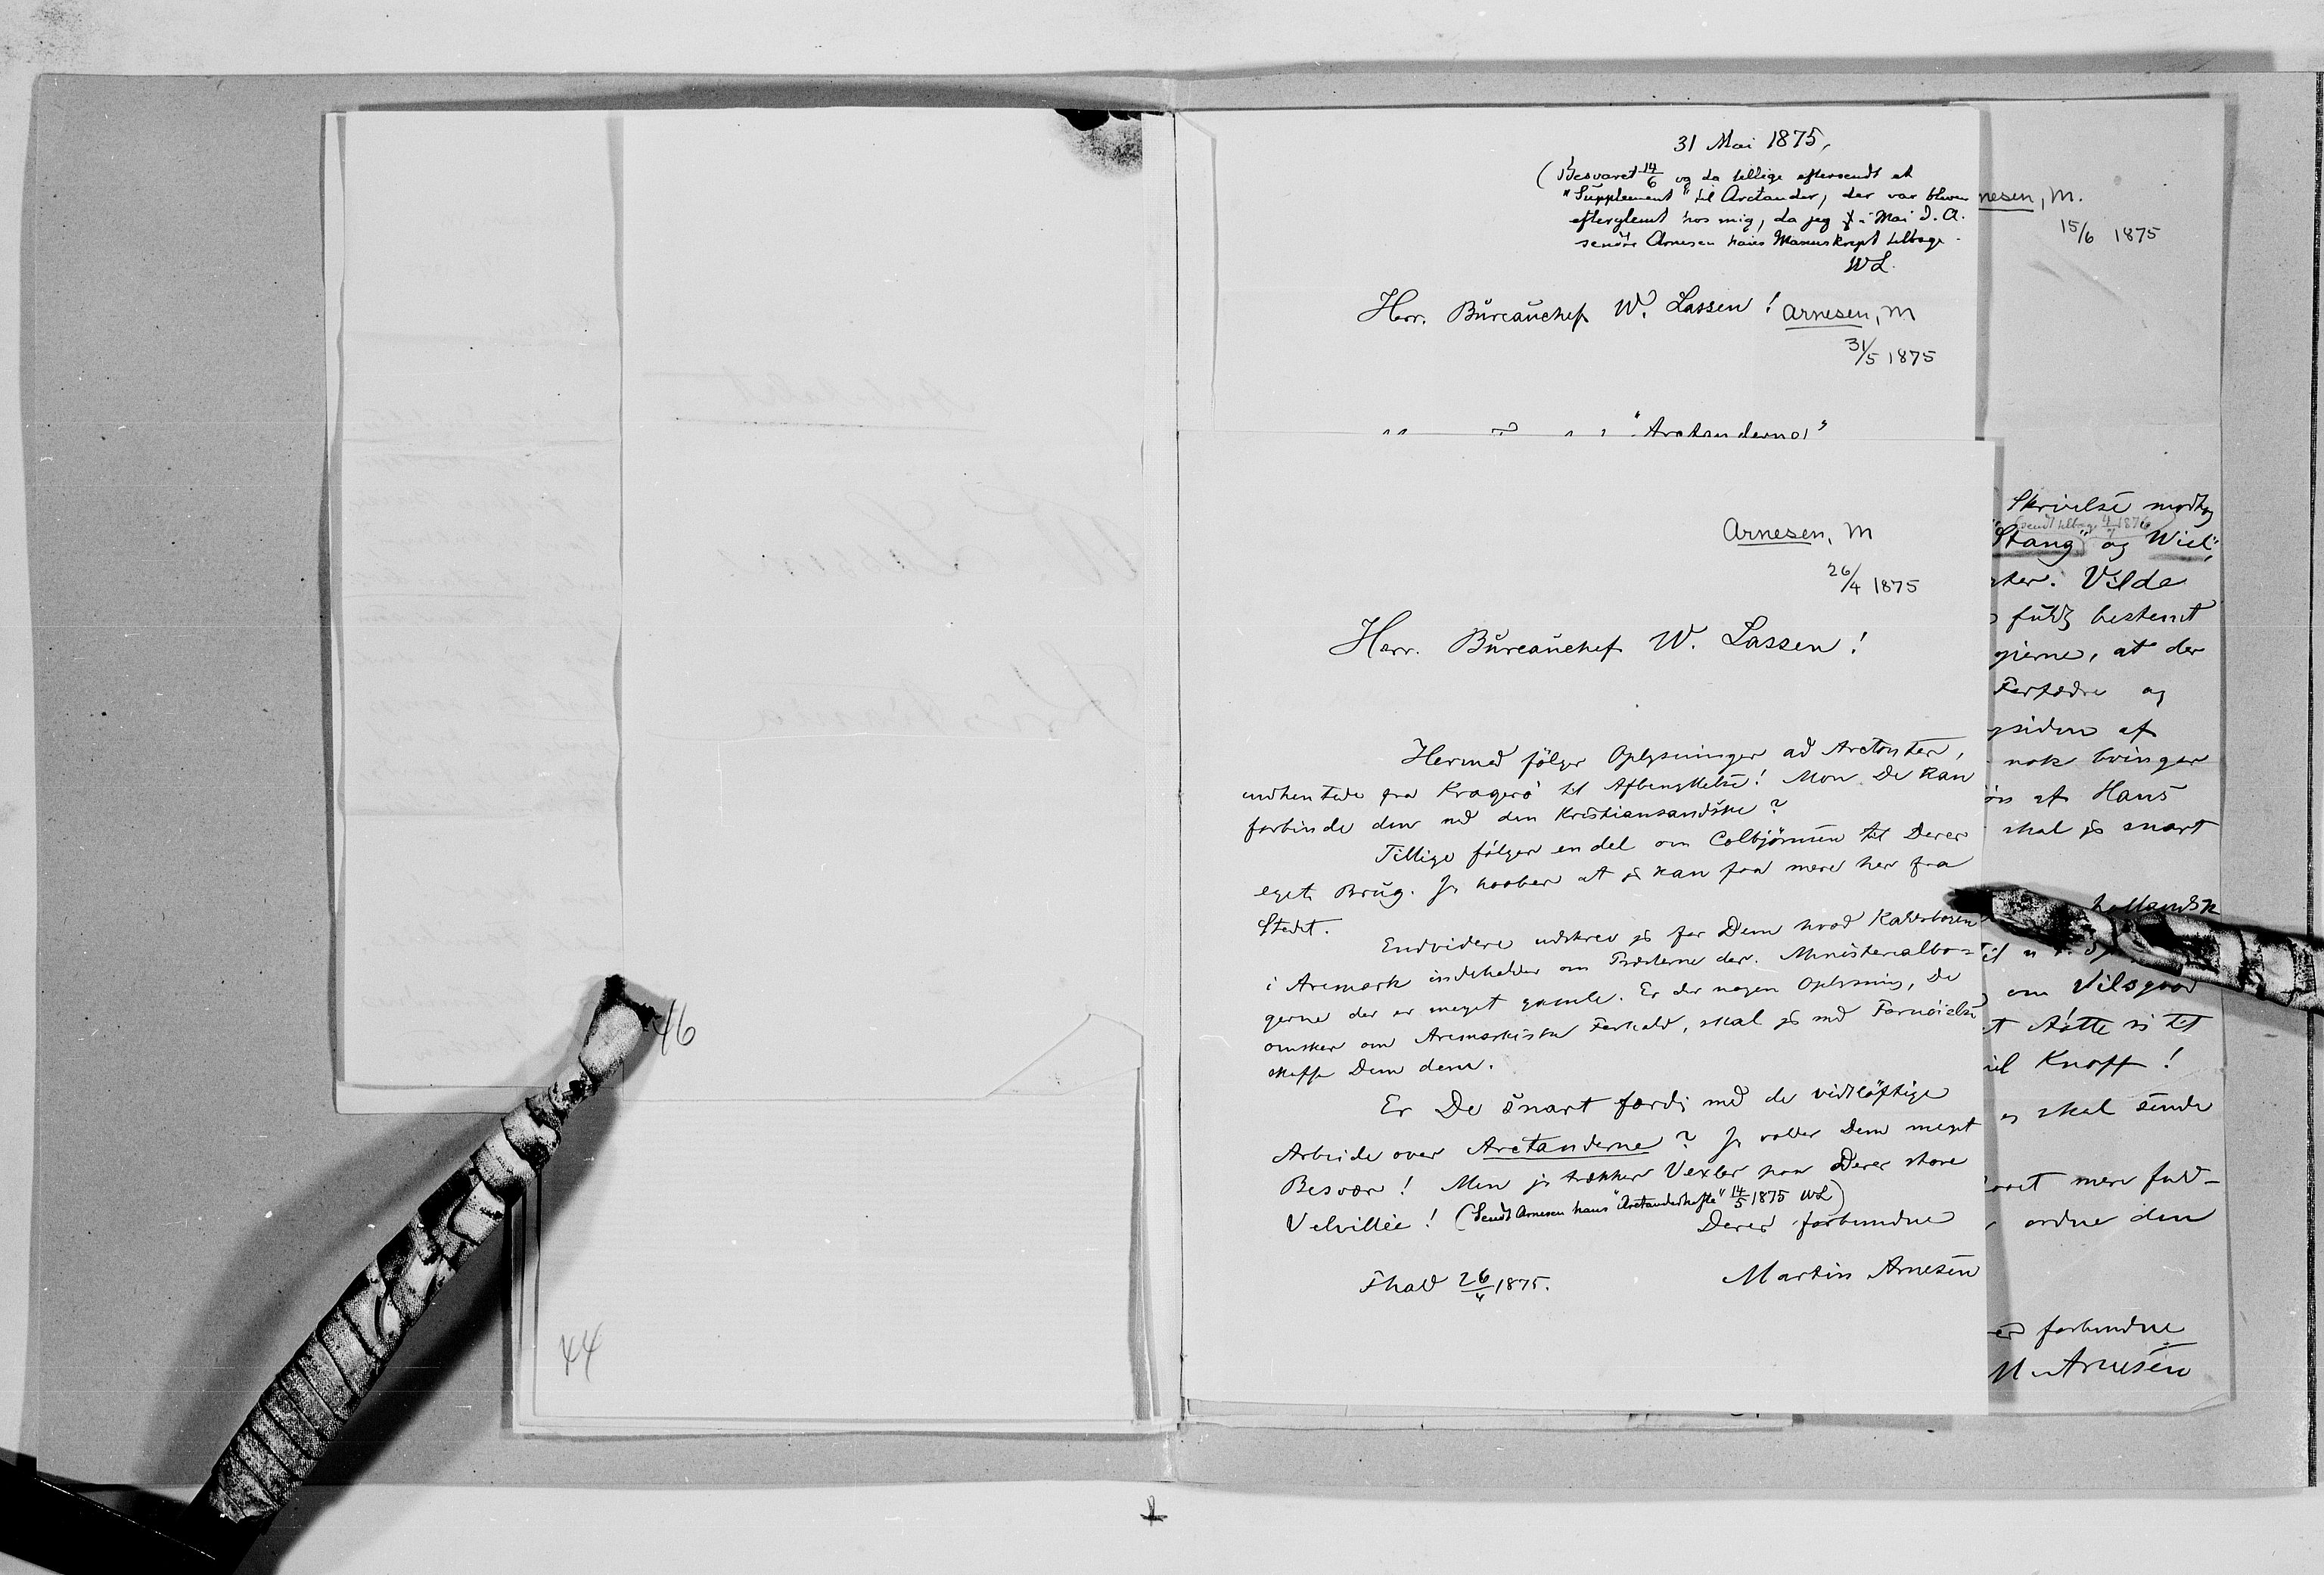 31 Mai 1875,
(Besvaret 14/6 og da tillige eftersendt et
"Supplement" til Arctander, der var bleven
efterglemt hos mig, da jeg i Mai d. A.
sendte Arnesen hans Manuskript tilbage.
WL.
Herr. Büreauchef W. Lassen!
Arnesen, M
31/5 1875
"Arctanderne"
Arnesen, M
26/4 1875
Herr. Büreauchef W. Lassen!
Hermed følger Oplysninger ad Arctander,
indhentede fra Kragerö til Afbenyttelse! Mon De kan
forbinde dem med den Kristiansandske?
Tillige følger en del om Colbjörnsen til Deres
eget Brug. Jeg haaber at jeg kan faa mere her fra
Stedet.
Endvidere udskrev jeg for Dem hvad Kaldsbogen
i Aremark indeholder om Præsterne der. Ministerialbø-
gerne der er meget gamle. Er der nogen Oplysning, De
ønsker om Aremarkiske Forhold, skal jeg med Fornöielse
skaffe Dem dem.
Er De snart færdig med de vidtløftige
Arbeide over Arctanderne? Jeg volder Dem meget
Besvær! Men jeg trækker Vexler paa Deres store
Velvillie! (Sendt Arnesen hans "Arctanderhefte" 14/5 1875 WL)
Deres forbundne
Fhald 26/4 1875.
Martin Arnesen
nesen, M.
15/6 1875
Skrivelse modtog
sendt tilbage 4/7 1876
"Stang" og Wiel,
ster. Vilde
fuldt bestemt
gierne, at der
Forfædre og
siden af
nok bringer
af Hans
skal jeg snart
hollandsk
om Vilsgaard
Knoff!
skal sende
mere fuld-
ordne den
forbundne
M. Arnesen
46
44